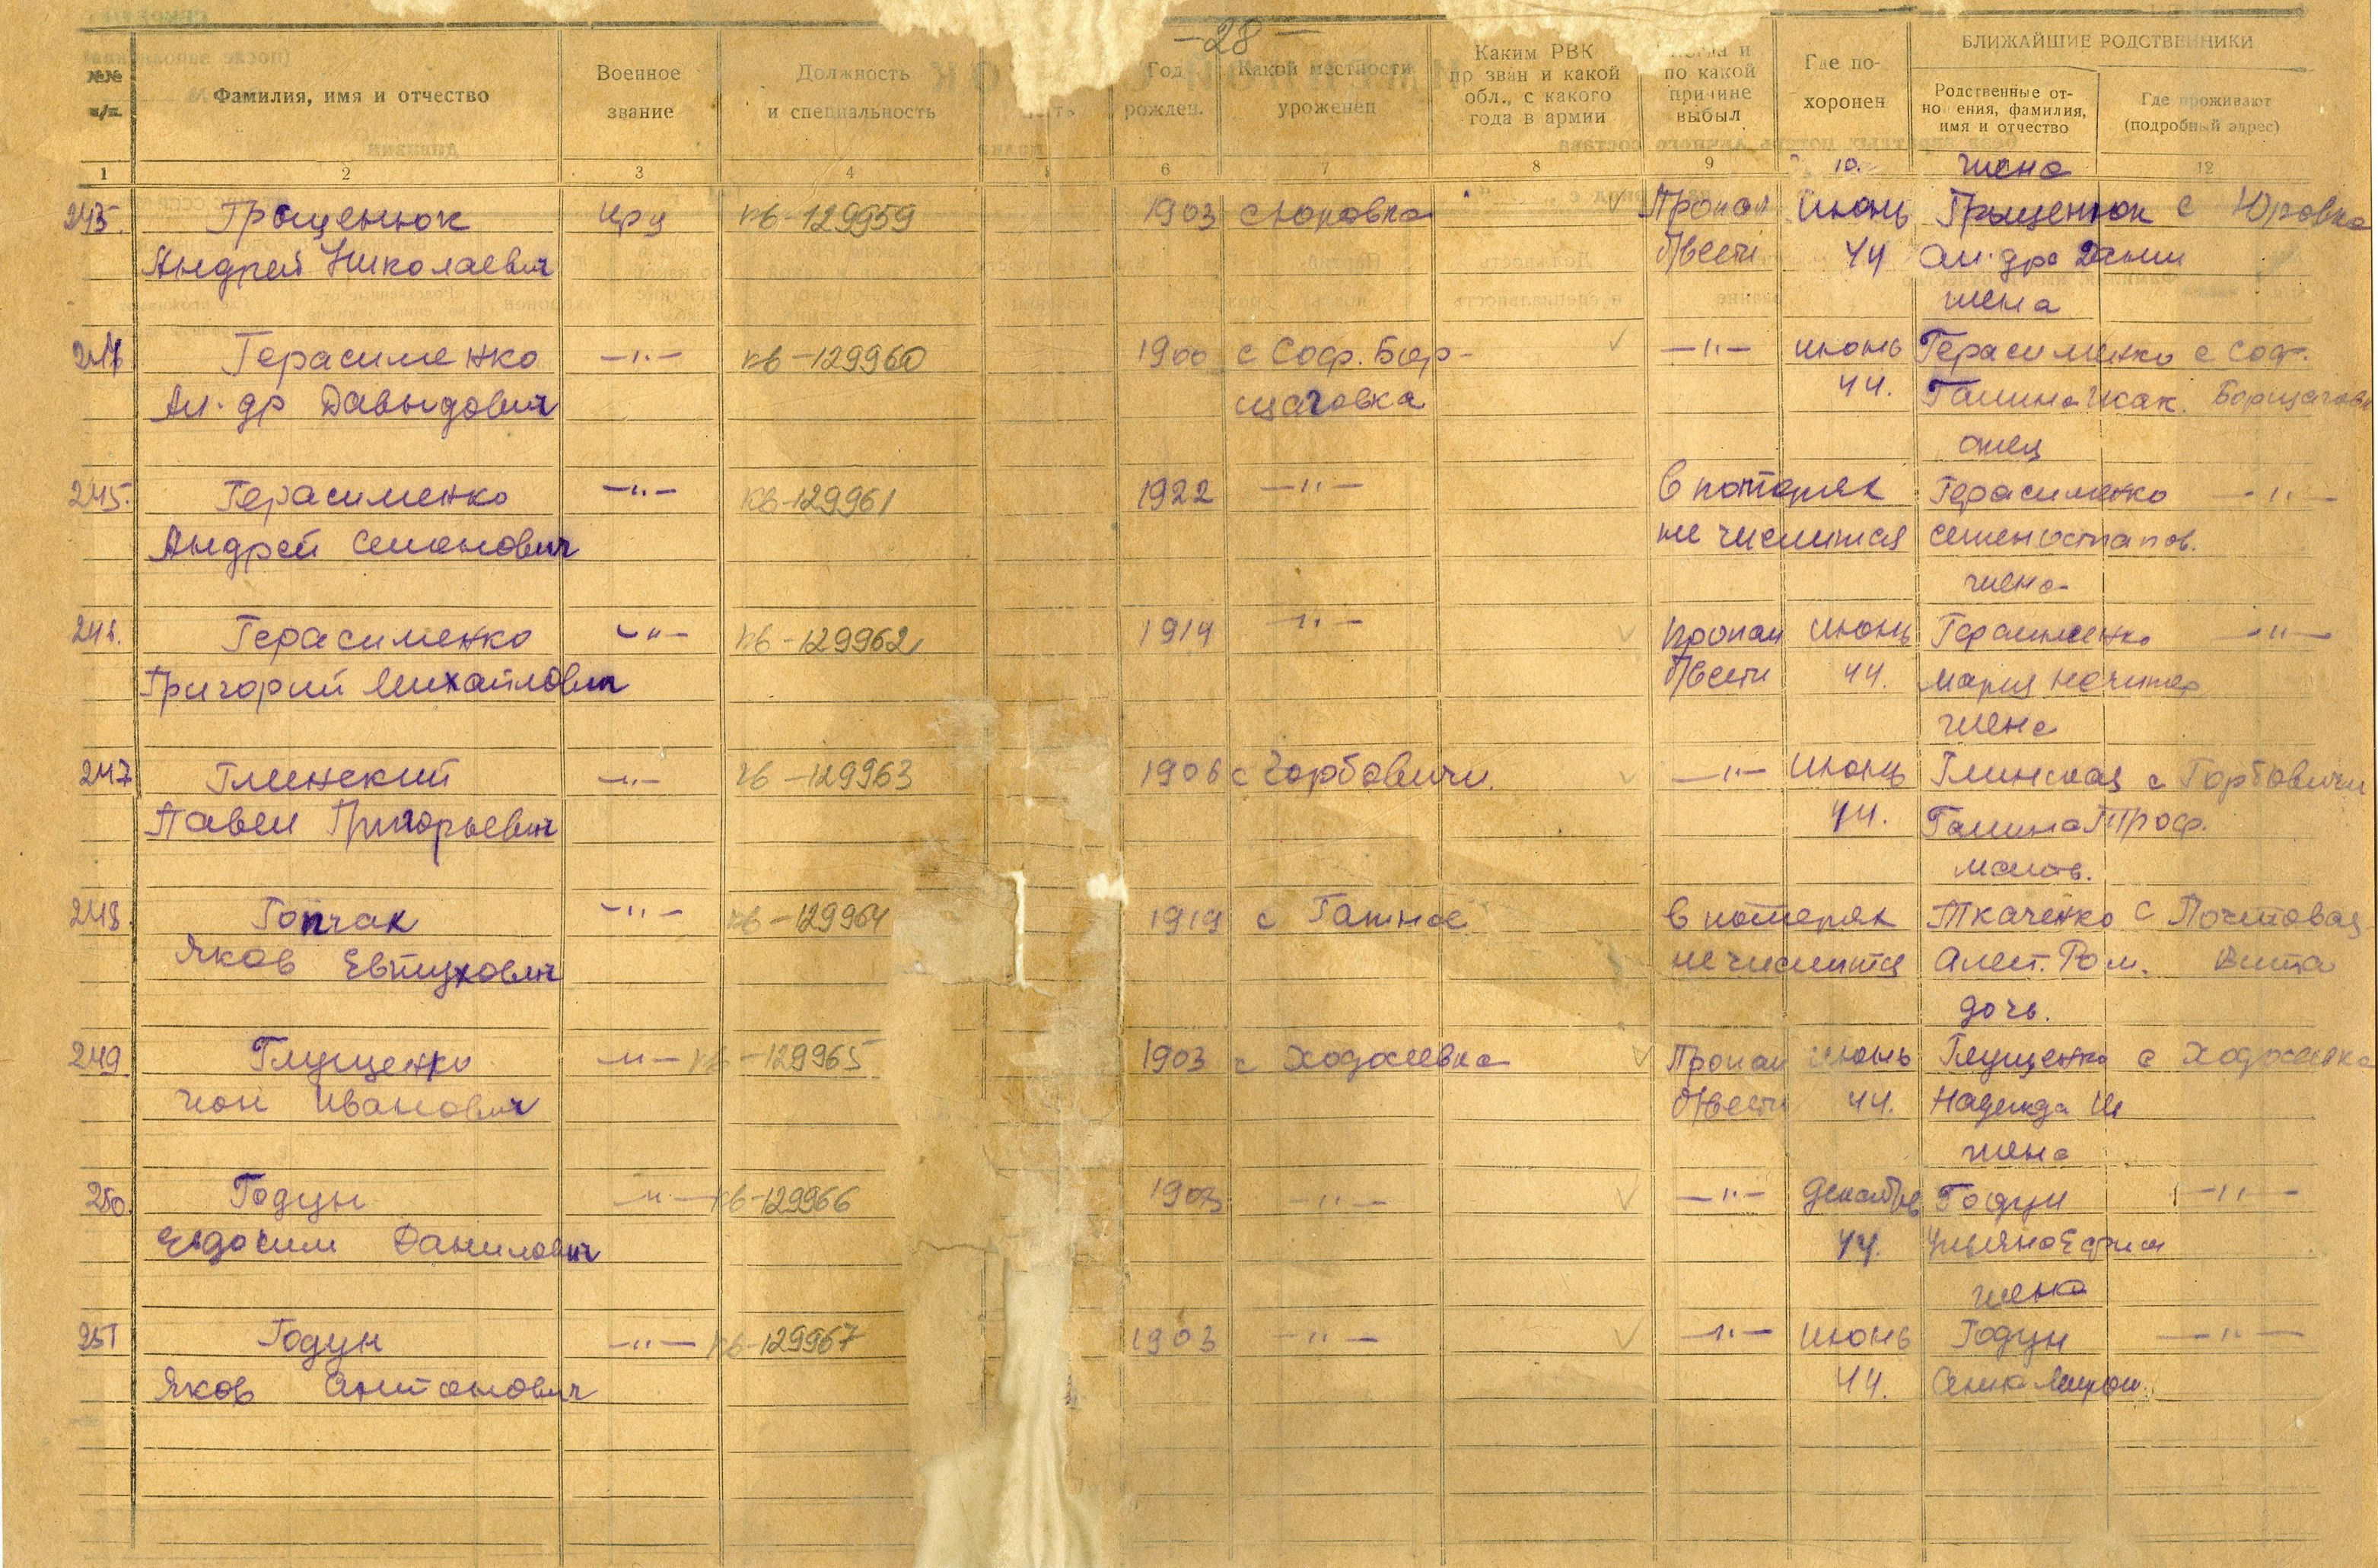 -28-
№№ п/п.
Фамилия, имя и отчество
Военное звание
Должность и специальность
Год рожден.
Какой местности уроженец
Каким РВК призван и какой обл., с какого года в армии
и по какой причине выбыл
Где похоронен
БЛИЖАЙШИЕ РОДСТВЕННИКИ
Родственные отношения, фамилия, имя и отчество
Где проживают (подробный адрес)
1 2 3 4 6 7 8 9 10 12
жена
Грыщенюк кв-129959 1903 с Юровка Пропал июнь Грыщенюк с Юровка
Андрей Николаевич б/вести 44
жена
Герасименко -"- кв-129960 1900 с Соф. Бор- -"- июнь Герасименко с Соф.
Ал-др Давыдович щаговка 44. Галина Исак. Борщаговк
отец
245. Герасименко -"- кв-129961 1922 -"- в потерях Герасименко -"-
Андрей Семенович не числится Семен Остапов.
жена
246. Герасименко -"- кв-129962 1914 -"- пропал июнь Герасименко -"-
Григорий Михайлович б/вести 44. Мария
жена
247 Глинский -"- кв-129963 1906 с Горбовичи. -"- июнь Глинская с Горбовичи
Павел Григорьевич 44. Галина Троф.
мать.
248. Гопчак -"- кв-129964 1919 с Гатное в потерях Ткаченко с Почтовая
Яков Евтухович не числится Алекс. Ром. Вита
дочь.
249 Глущенко -"- кв-129965 1903 с Ходосеевка Пропал июнь Глущенко с Ходосеевка
Иванович б/вести 44. Надежда
жена
250. Годун -"- кв-129966 1903 -"- -"- декабрь Годун -"-
Евдоким Данилович 44. Ульяна Ефим
жена
251 Годун -"- кв-129967 1903 -"- -"- июнь Годун -"-
Яков Антонович 44. Анна Миррон.